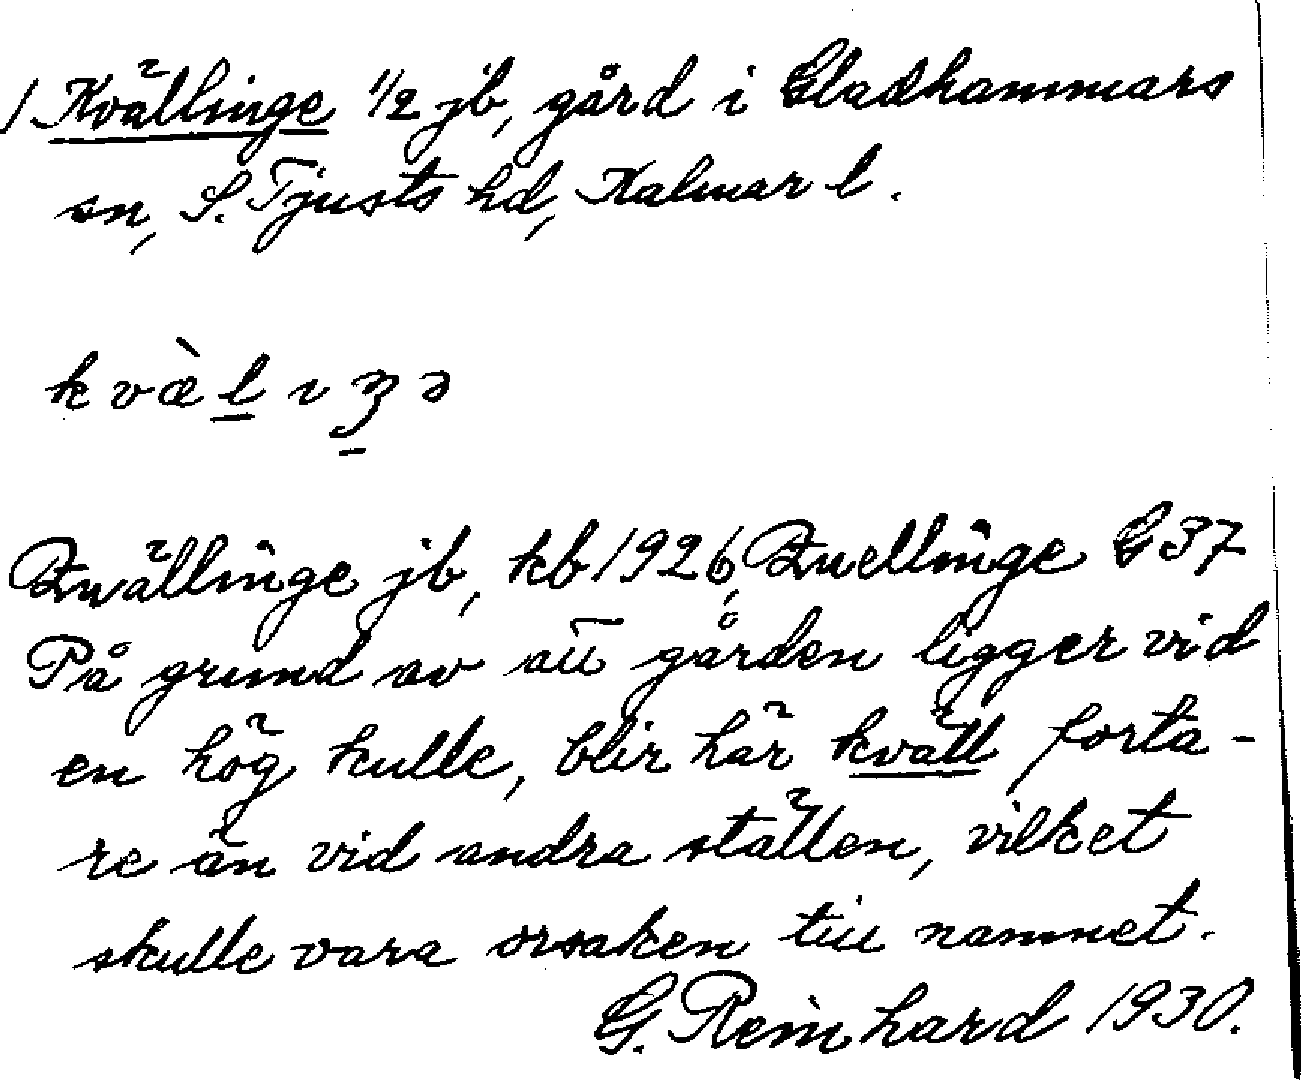 1 Kvällinge 1/2 jb, gård i Gladhammars
sn, S. Tjusts hd, Kalmar l.
kvæ̀lıꜧə
Qwällinge jb, kb 1926, Quellinge G 37
På grund av att gården ligger vid
en hög kulle, blir här kväll forta-
re än vid andra ställen, vilket
skulle vara orsaken till namnet.
G. Reinhard 1930.